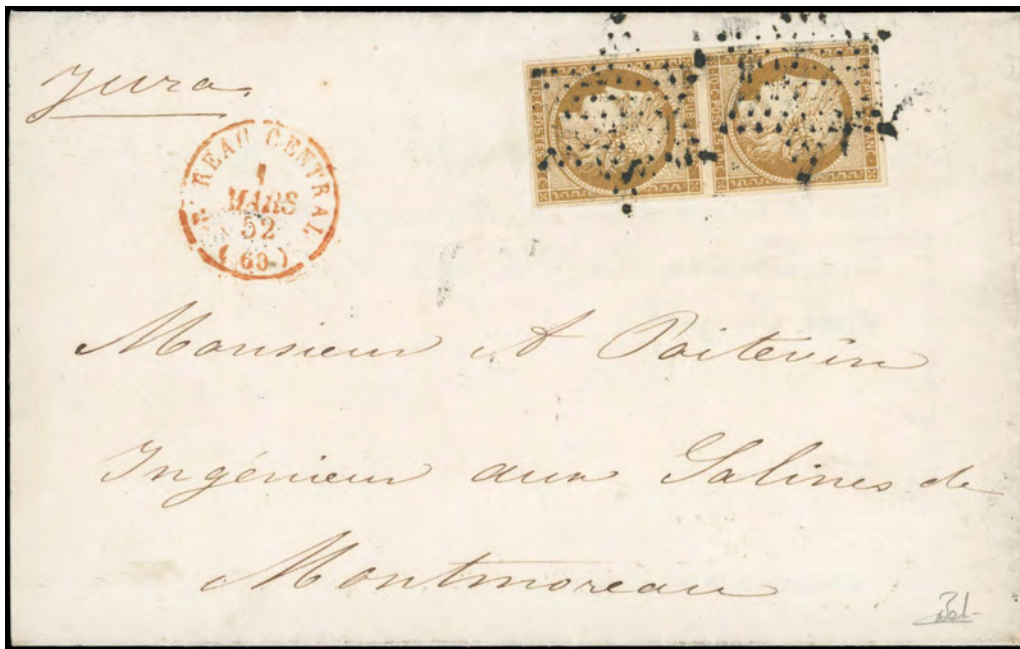 Jura
BUREAU CENTRAL
1
MARS
52
(60)
Monsieur A Poitevin
Ingénieur aux Salines de
Montmoreau